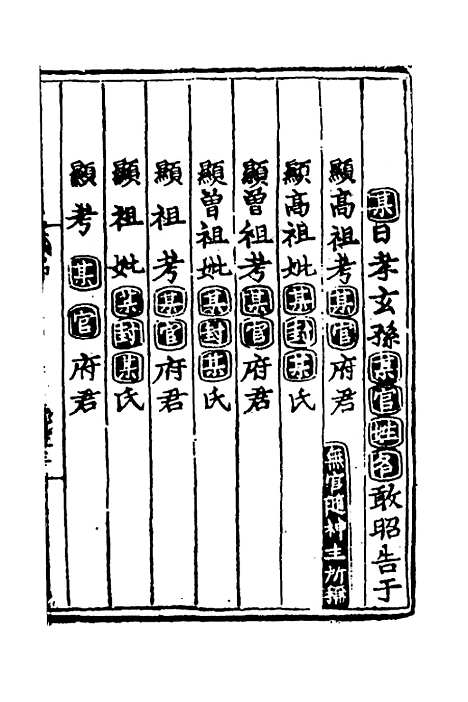 某日孝玄孫某官姓名敢昭告于
顯高祖考某官府君無官隨神主所稱
顯高祖妣某封某氏
顯曾祖考某官府君
顯曾祖妣某封某氏
顯祖考某官府君
顯祖妣某封某氏
顯考某官府君